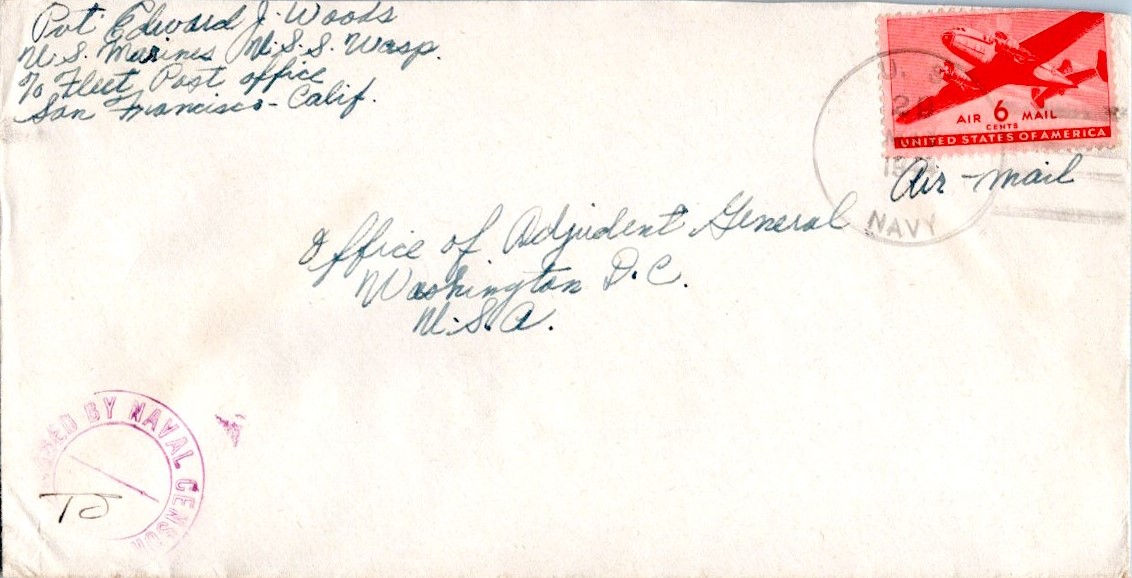 Pvt. Edward J. Woods
U.S. Marines U.S.S. Wasp.
℅ Fleet Post office
San Francisco - Calif.
AIR 6 MAIL
CENTS
UNITED STATES OF AMERICA
U. S.
NAVY
Air-mail
Office of Adjudent General
Washington D.C.
U.S.A.
BY NAVAL CENSOR